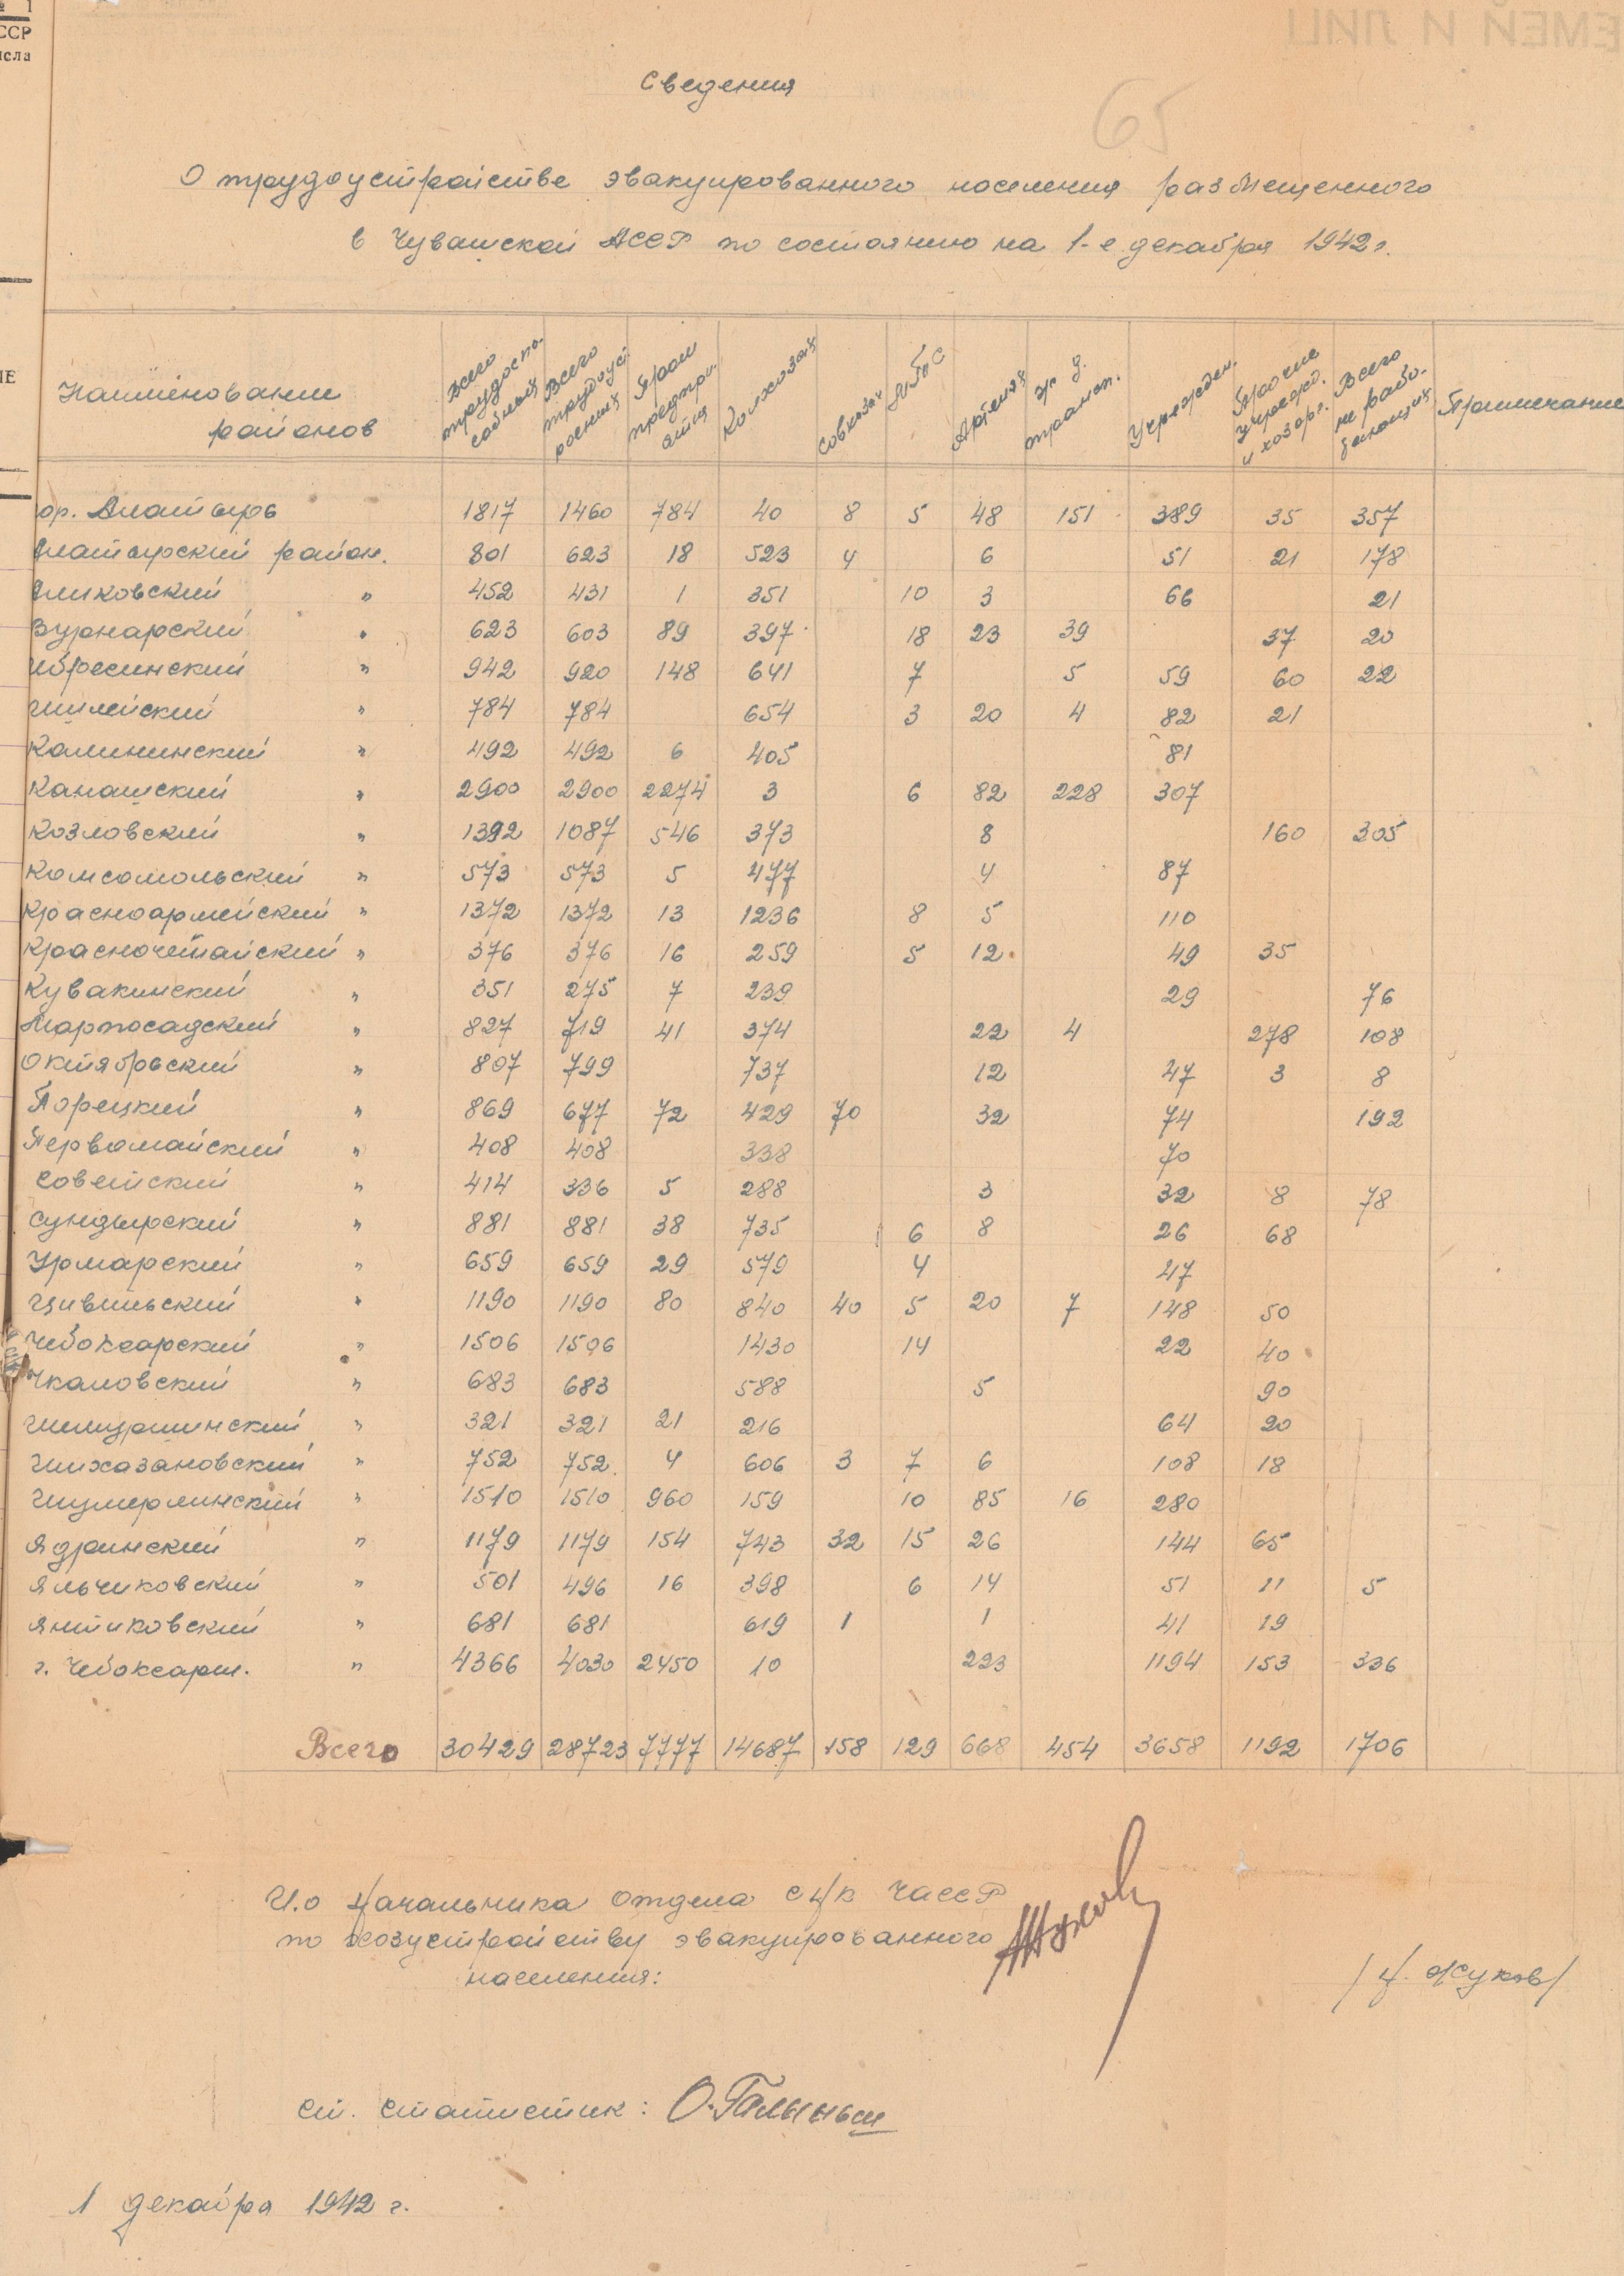 № 1
ССР
исла
ЕМЕЙ И ЛИЦ
65
Сведения
О трудоустройстве эвакуированного населения размещенного
в Чувашской АССР по состоянию на 1-е декабря 1942 г.
Наименование районов | Всего трудоспособных | Всего трудоустроенных | Пром предприятия | Колхозах | Совхозах | МТС | Артелях | ж.д. трансп. | Учрежден. | Прочие учрежд. и хозорг. | Всего не работающих | Примечание
гор. Алатырь 1817 1460 784 40 8 5 48 151 389 35 357
Алатырский район. 801 623 18 523 4 6 51 21 178
Аликовский " 452 431 1 351 10 3 66 21
Вурнарский " 623 603 89 397 18 23 39 37 20
Ибресинский " 942 920 148 641 7 5 59 60 22
Ишлейский " 784 784 654 3 20 4 82 21
Калининский " 492 492 6 405 81
Канашский " 2900 2900 2274 3 6 82 228 307
Козловский " 1392 1087 546 373 8 160 305
Комсомольский " 573 573 5 477 4 87
Красноармейский " 1372 1372 13 1236 8 5 110
Красночетайский " 376 376 16 259 5 12 49 35
Кувакинский " 351 275 7 239 29 76
Марпосадский " 827 719 41 374 22 4 278 108
Октябрьский " 807 799 737 12 47 3 8
Порецкий " 869 677 72 429 70 32 74 192
Первомайский " 408 408 338 70
Советский " 414 336 5 288 3 32 8 78
Сундырский " 881 881 38 735 6 8 26 68
Урмарский " 659 659 29 579 4 47
Цивильский " 1190 1190 80 840 40 5 20 7 148 50
Чебоксарский " 1506 1506 1430 14 22 40
Чкаловский " 683 683 588 5 90
Шемуршинский " 321 321 21 216 64 20
Шихазановский " 752 752 4 606 3 7 6 108 18
Шумерлинский " 1510 1510 960 159 10 85 16 280
Ядринский " 1179 1179 154 743 32 15 26 144 65
Яльчиковский " 501 496 16 398 6 14 51 11 5
Янтиковский " 681 681 619 1 1 41 19
г. Чебоксары. " 4366 4030 2450 10 223 1194 153 336
Всего 30429 28723 7777 14687 158 129 668 454 3658 1192 1706
И.о Начальника отдела СНК ЧАССР
по хозустройству эвакуированного
населения:
/Н. Жуков/
Ст. статистик:
1 декабря 1942 г.